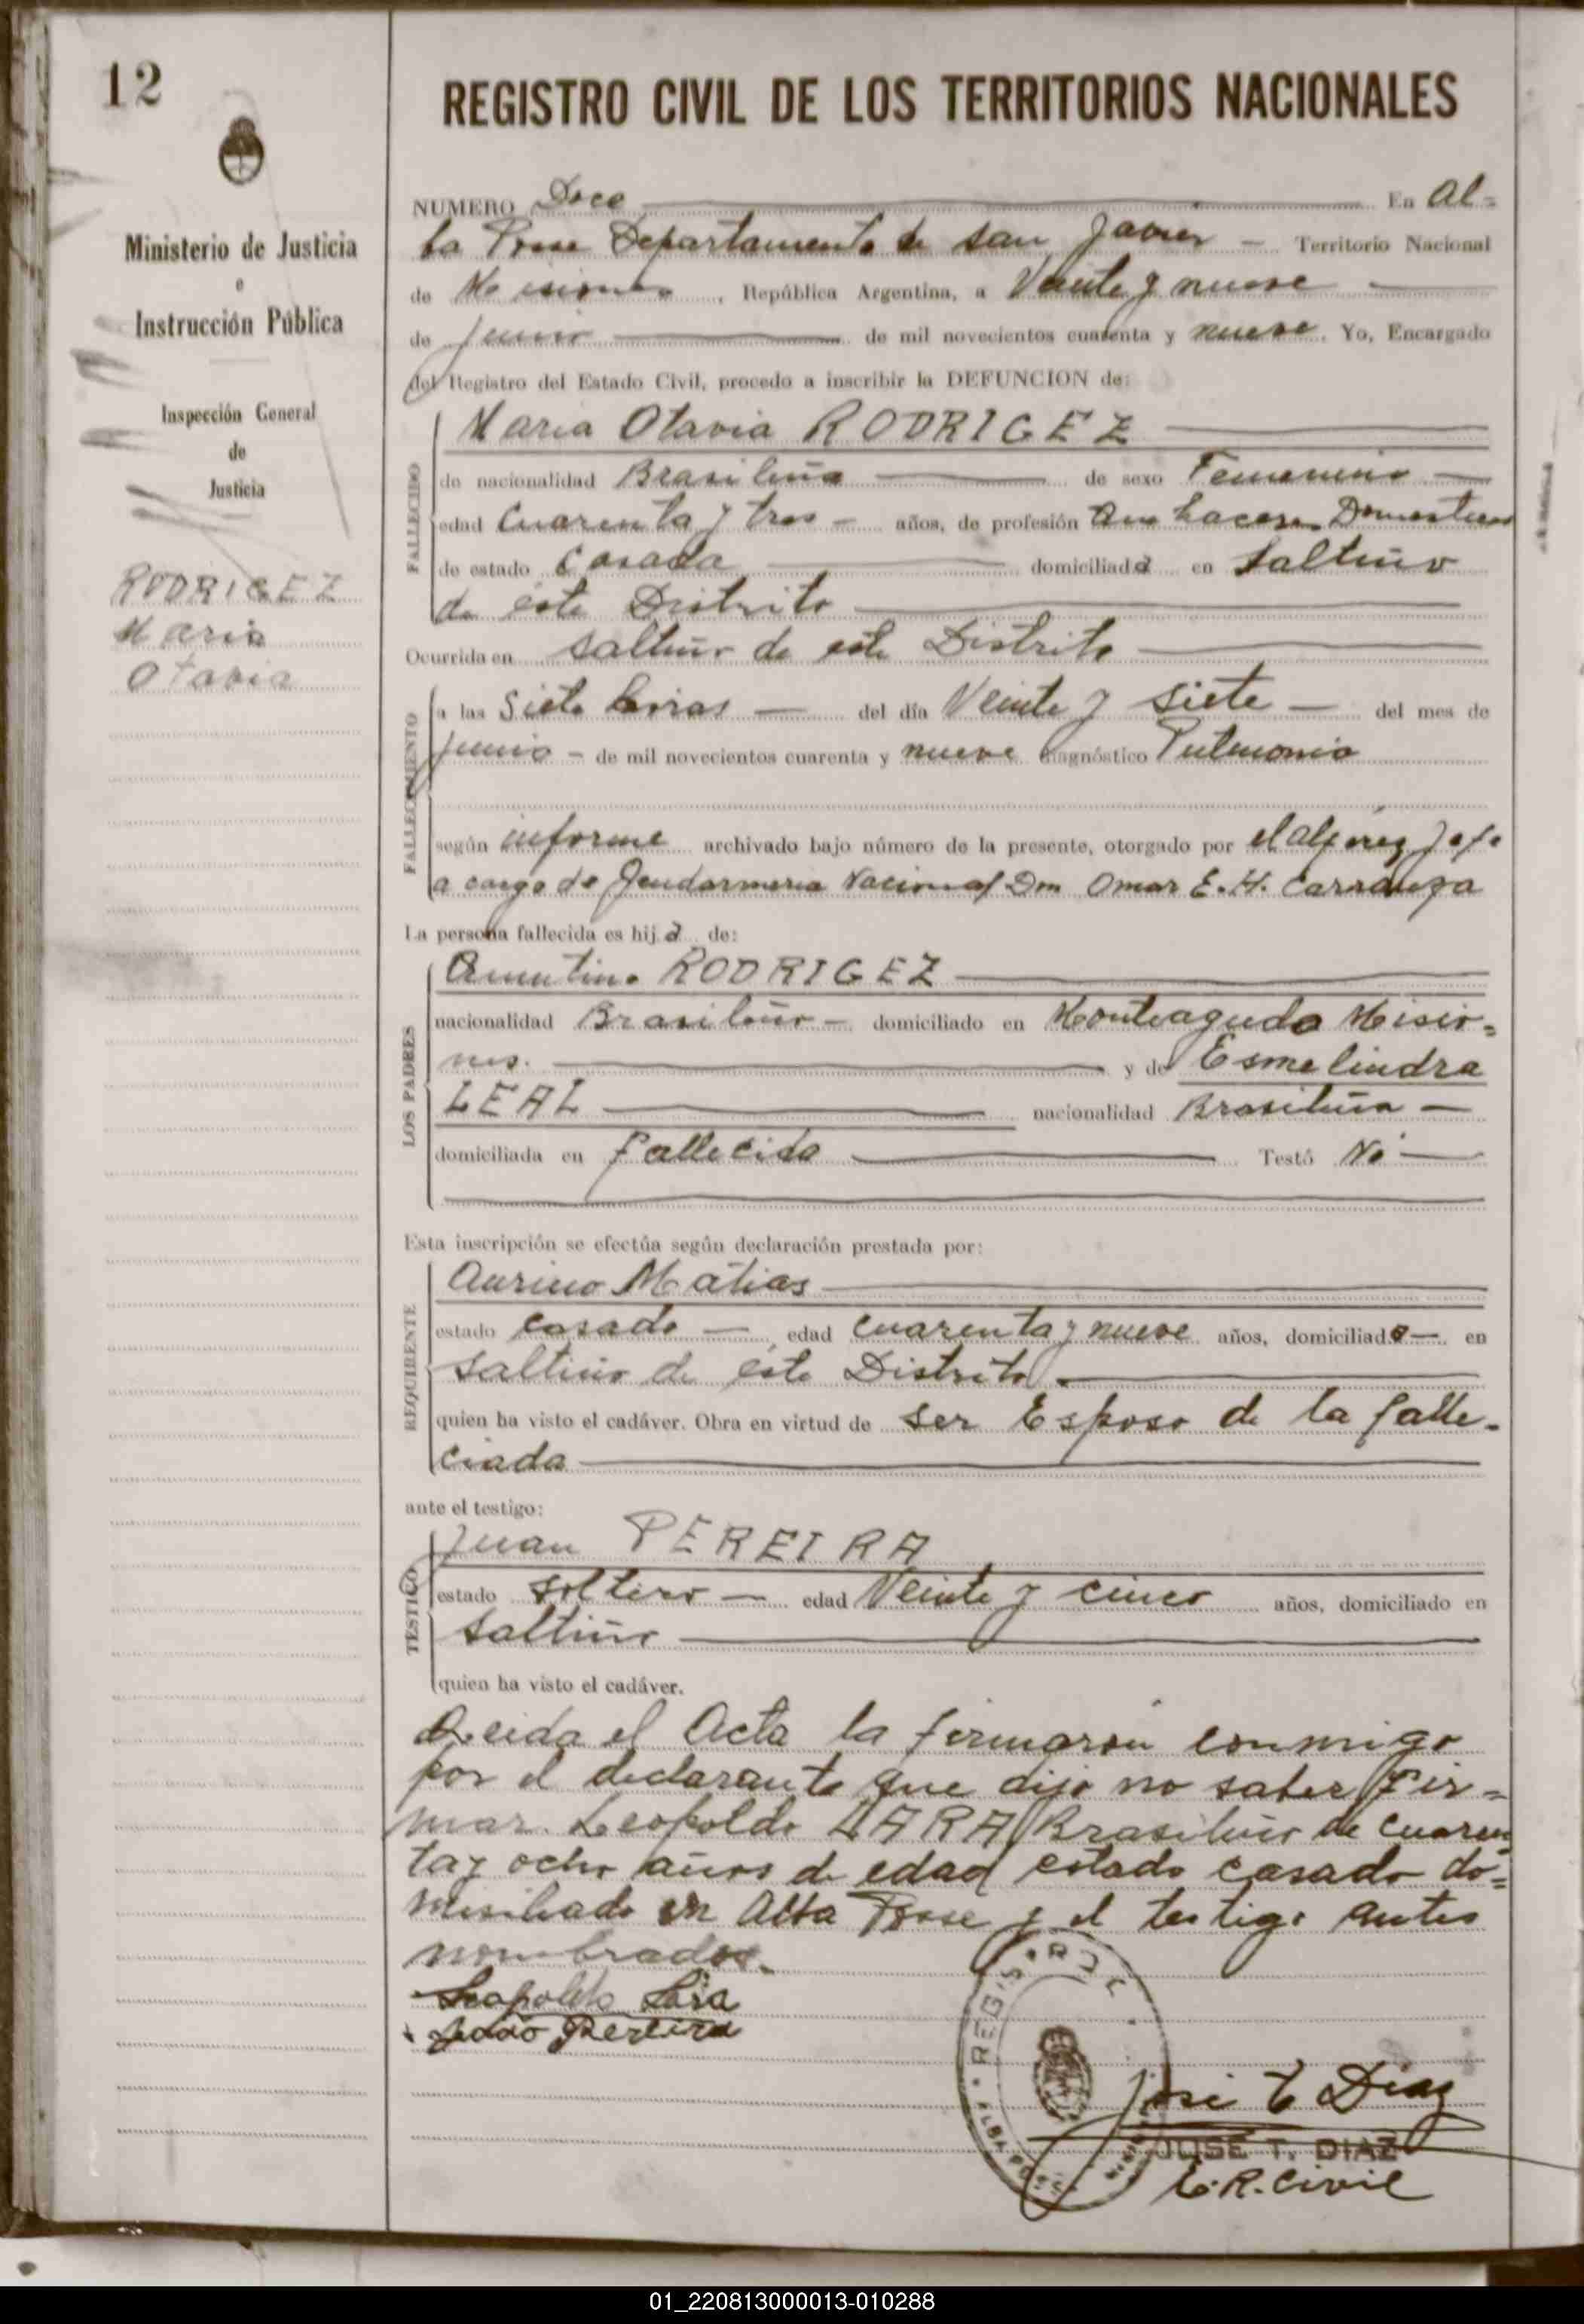 12
Ministerio de Justicia
e
Instrucción Pública
Inspección General
de
Justicia
RODRIGEZ
Maria
Otavia
REGISTRO CIVIL DE LOS TERRITORIOS NACIONALES
NUMERO Doce En Al-
ba Posse Departamento de san Javier Territorio Nacional
de Misiones, República Argentina, a Veinte y nueve
de Junio de mil novecientos cuarenta y nueve. Yo, Encargado
del Registro del Estado Civil, procedo a inscribir la DEFUNCION de:
FALLECIDO
Maria Otavia RODRIGEZ
de nacionalidad Brasileña de sexo Femenino
edad Cuarenta y tres años, de profesión Que haceres Domesticos
de estado Casada domiciliada en Saltiño
de éste Distrito
Ocurrida en Saltiño de este Distrito
FALLECIMIENTO
a las Siete horas del día Veinte y Siete del mes de
Junio - de mil novecientos cuarenta y nueve diagnóstico Pulmonia
según informe archivado bajo número de la presente, otorgado por el alférez Jefe
a cargo de Jendarmeria Nacional Don Omar E. H. Carranza
La persona fallecida es hija de:
LOS PADRES
RODRIGEZ
nacionalidad Brasileño - domiciliado en Monteagudo Misio=
nes. y de Esmelindra
LEAL nacionalidad Brasileña -
domiciliada en fallecida Testó No
Esta inscripción se efectúa según declaración prestada por:
REQUIRENTE
Aurino Matias
estado casado - edad cuarenta y nueve años, domiciliado - en
Saltiño de éste Distrito.
quien ha visto el cadáver. Obra en virtud de ser Esposo de la falle-
ciada
ante el testigo:
TESTIGO
Juan PEREIRA
estado soltero - edad Veinte y cinco años, domiciliado en
Saltiño
quien ha visto el cadáver.
Leida el Acta la firmaron conmigo
por el declarante que dijo no saber fir=
mar. Leopoldo LARA Brasileño de cuaren
ta y ocho años de edad estado casado do=
misiliado en Alba Posse y el testigo antes
nombrados.
Leopoldo Lara
João Pereira
REGISTRO CIVIL
ALBA POSSE
José T Diaz
JOSE T. DIAZ
E. R. Civil
01_220813000013-010288